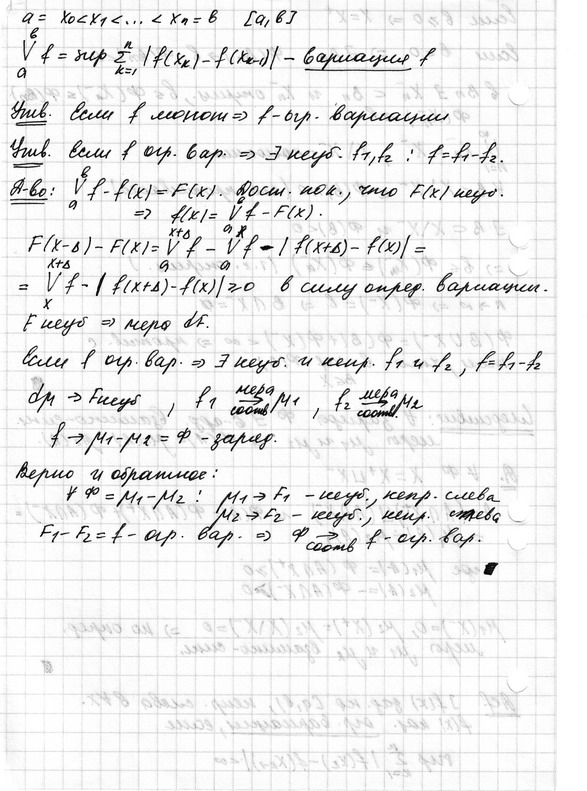 a = x₀ < x₁ < ... < xₙ = b [a, b]
V_a^b f = sup Σ_{k=1}^n |f(x_k) - f(x_{k-1})| - вариация f
Утв. Если f монот ⇒ f - огр. вариации
Утв. Если f огр. вар. ⇒ ∃ неуб. f₁, f₂ : f = f₁ - f₂.
Д-во: V_a^b f - f(x) = F(x). Дост. пок., что F(x) неуб.
⇒ f(x) = V_a^b f - F(x).
F(x-Δ) - F(x) = V_a^{x+Δ} f - V_a^x f - |f(x+Δ) - f(x)| =
= V_x^{x+Δ} f - |f(x+Δ) - f(x)| ≥ 0 в силу опред. вариации.
F неуб ⇒ мера dF.
Если f огр. вар. ⇒ ∃ неуб. и непр. f₁ и f₂, f = f₁ - f₂
dμ → F неуб , f₁ →(мера соотв) μ₁ , f₂ →(мера соотв) μ₂
f → μ₁ - μ₂ = Ф - заряд.
Верно и обратное:
∀ Ф = μ₁ - μ₂ : μ₁ → F₁ - неуб., непр. слева
μ₂ → F₂ - неуб., непр. слева
F₁ - F₂ = f - огр. вар. ⇒ Ф →(соотв) f - огр. вар.